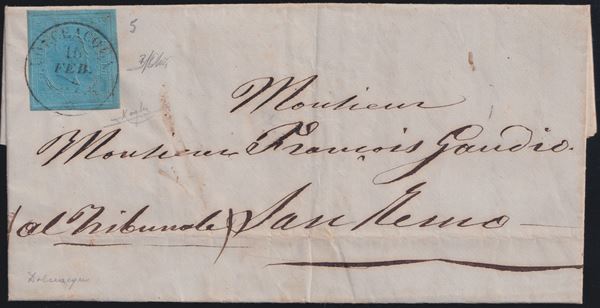 DOLCEACQUA
16
FEB.
5
Monsieur
Monsieur François Gaudio.
(al Tribunale) San Remo
Dolceacqua